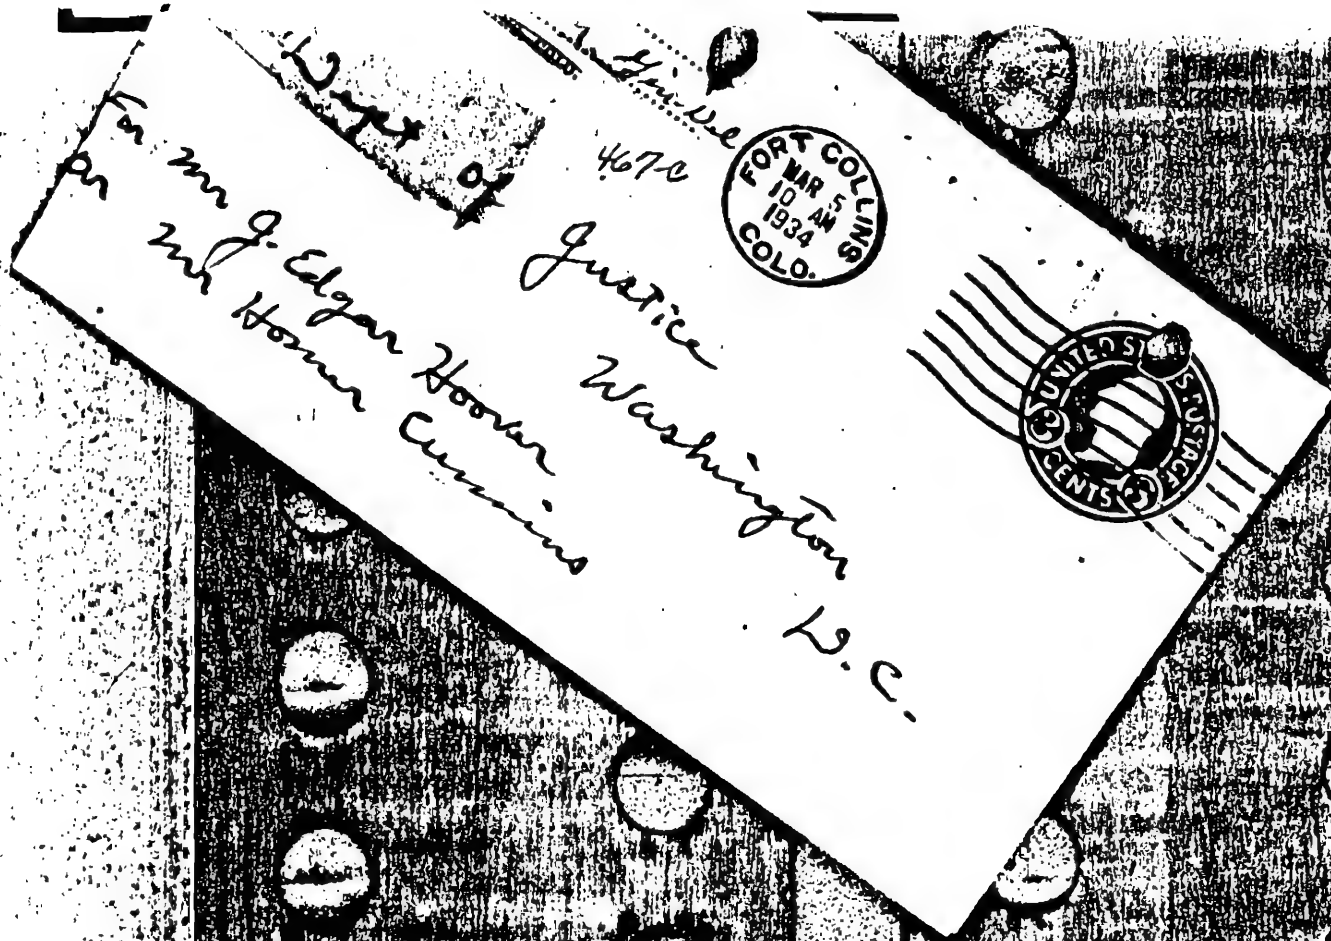 Dept of Justice
Washington
D.C.
For Mr J. Edgar Hoover
or Mr Homer Cummins
467-C
FORT COLLINS
MAR 5
10 AM
1934
COLO.
UNITED STATES POSTAGE
3 CENTS 3